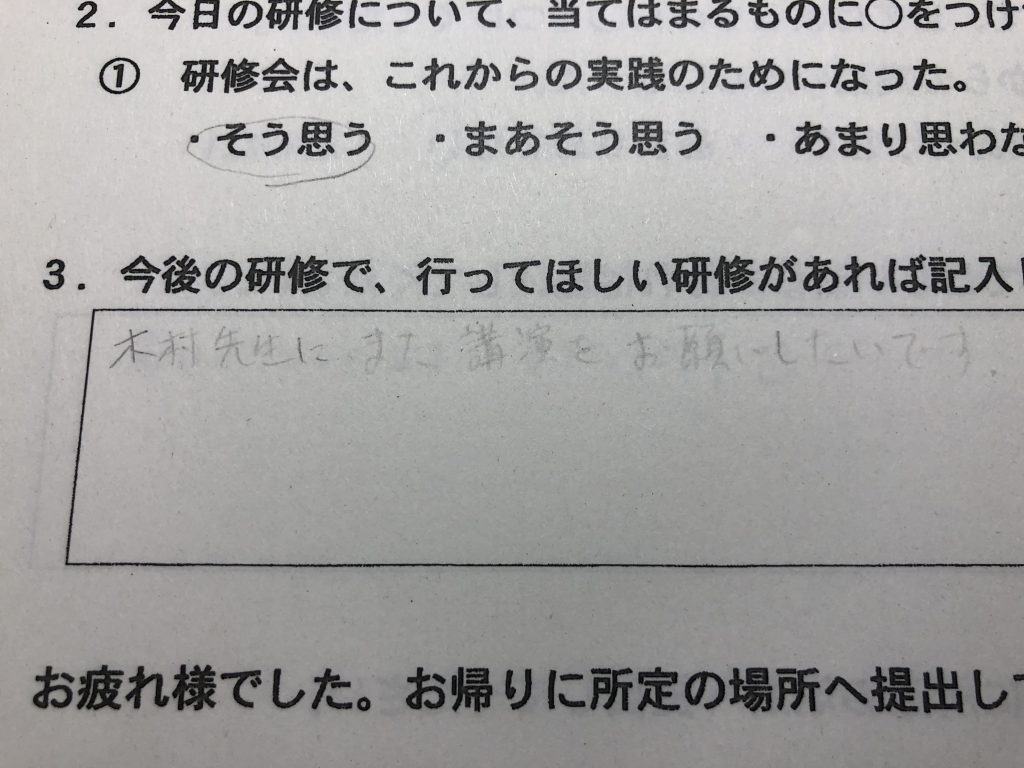 2. 今日の研修について、当てはまるものに○をつけ
① 研修会は、これからの実践のためになった。
・そう思う ・まあそう思う ・あまり思わな
3. 今後の研修で、行ってほしい研修があれば記入し
木村先生に また 講演を お願いしたいです.
お疲れ様でした。お帰りに所定の場所へ提出して